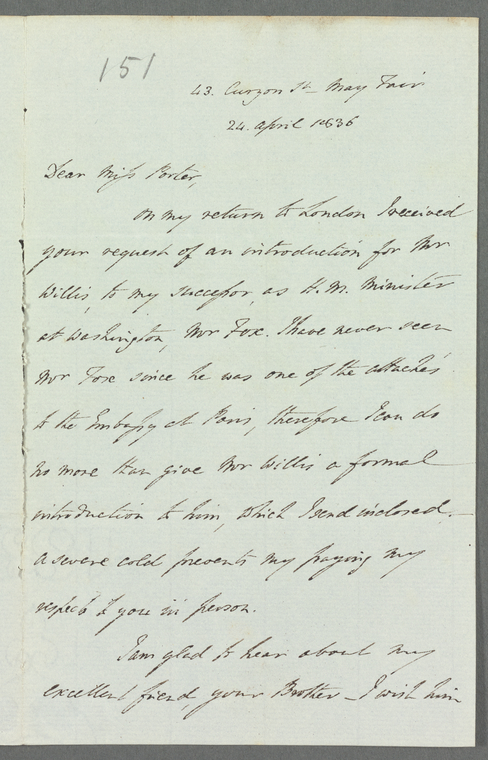 151
43. Curzon St- May Fair
24. April 1836
Dear Miss Porter,
On my return to London I received
your request of an introduction for Mr
Willis, to my successor, as H. M. Minister
at Washington, Mr Fox. I have never seen
Mr Fox since he was one of the attachés
to the Embassy at Paris, therefore I can do
no more than give Mr Willis a formal
introduction to him, which I send inclosed.—
A severe cold prevents my paying my
respects to you in person.
I am glad to hear about my
excellent friend, your Brother – I wish him